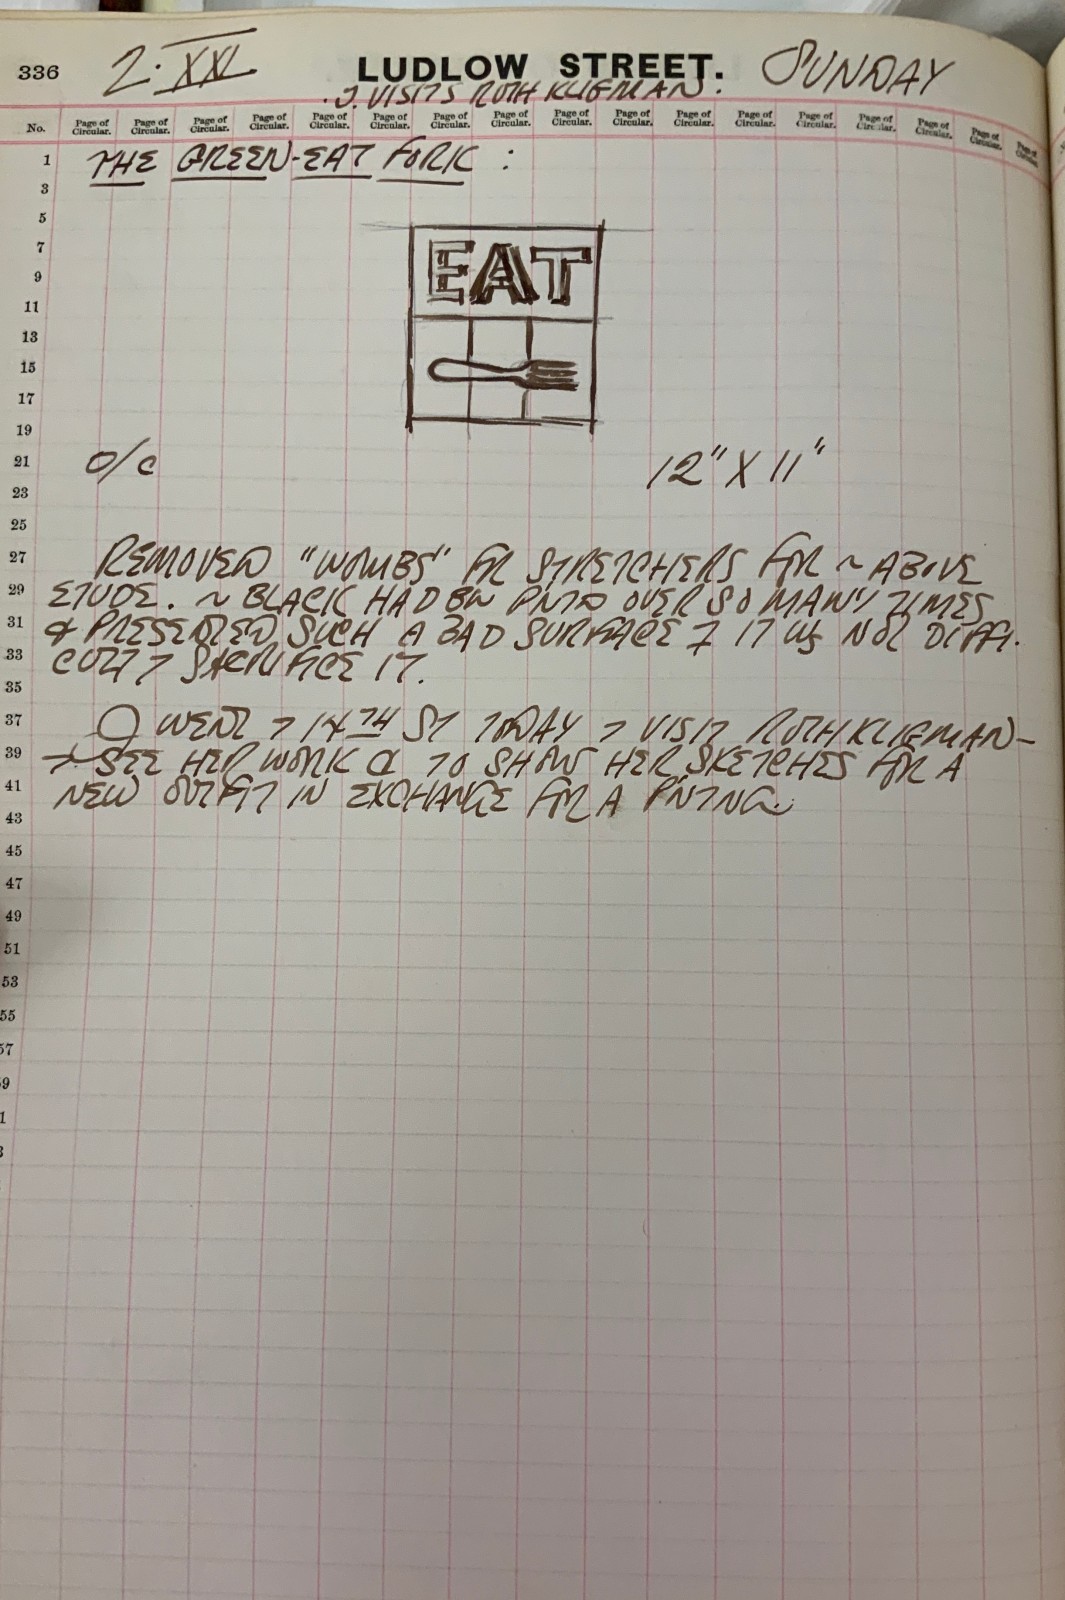 336 2·XXI LUDLOW STREET. SUNDAY
J. VISITS RUTH KLIGMAN.
No. Page of Circular. Page of Circular. Page of Circular. Page of Circular. Page of Circular. Page of Circular. Page of Circular. Page of Circular. Page of Circular. Page of Circular. Page of Circular. Page of Circular. Page of Circular. Page of Circular. Page of Circular. Page of Circular. Page of Circular.
1 THE GREEN-EAT FORK :
3
5
7 EAT
9
11
13
15
17
19
21 O/C 12" X 11"
23
25
27 REMOVED "WOMBS" FR STRETCHERS FOR ~ ABOVE
29 ETUDE. ~ BLACK HAD BN PNTD OVER SO MANY TIMES
31 & PRESENTED SUCH A BAD SURFACE IT WS NOT DIFFI-
33 CULT SACRIFICE IT.
35
37 WENT > 14TH ST TODAY > VISIT RUTH KLIGMAN-
39 > SEE HER WORK & TO SHOW HER SKETCHES FOR A
41 NEW OUTFIT IN EXCHANGE FOR A PNTNG.
43
45
47
49
51
53
55
57